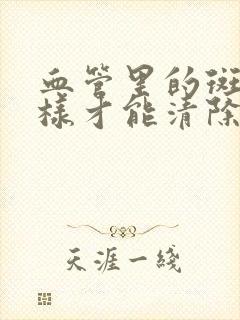 血管里的斑
様才能清除
天涯一綫